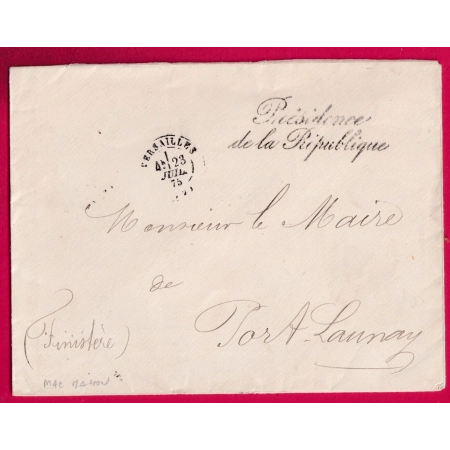 Présidence
de la République
VERSAILLES
23
JUIL.
75
Monsieur le Maire
de
Port-Launay
(Finistère)
Mac